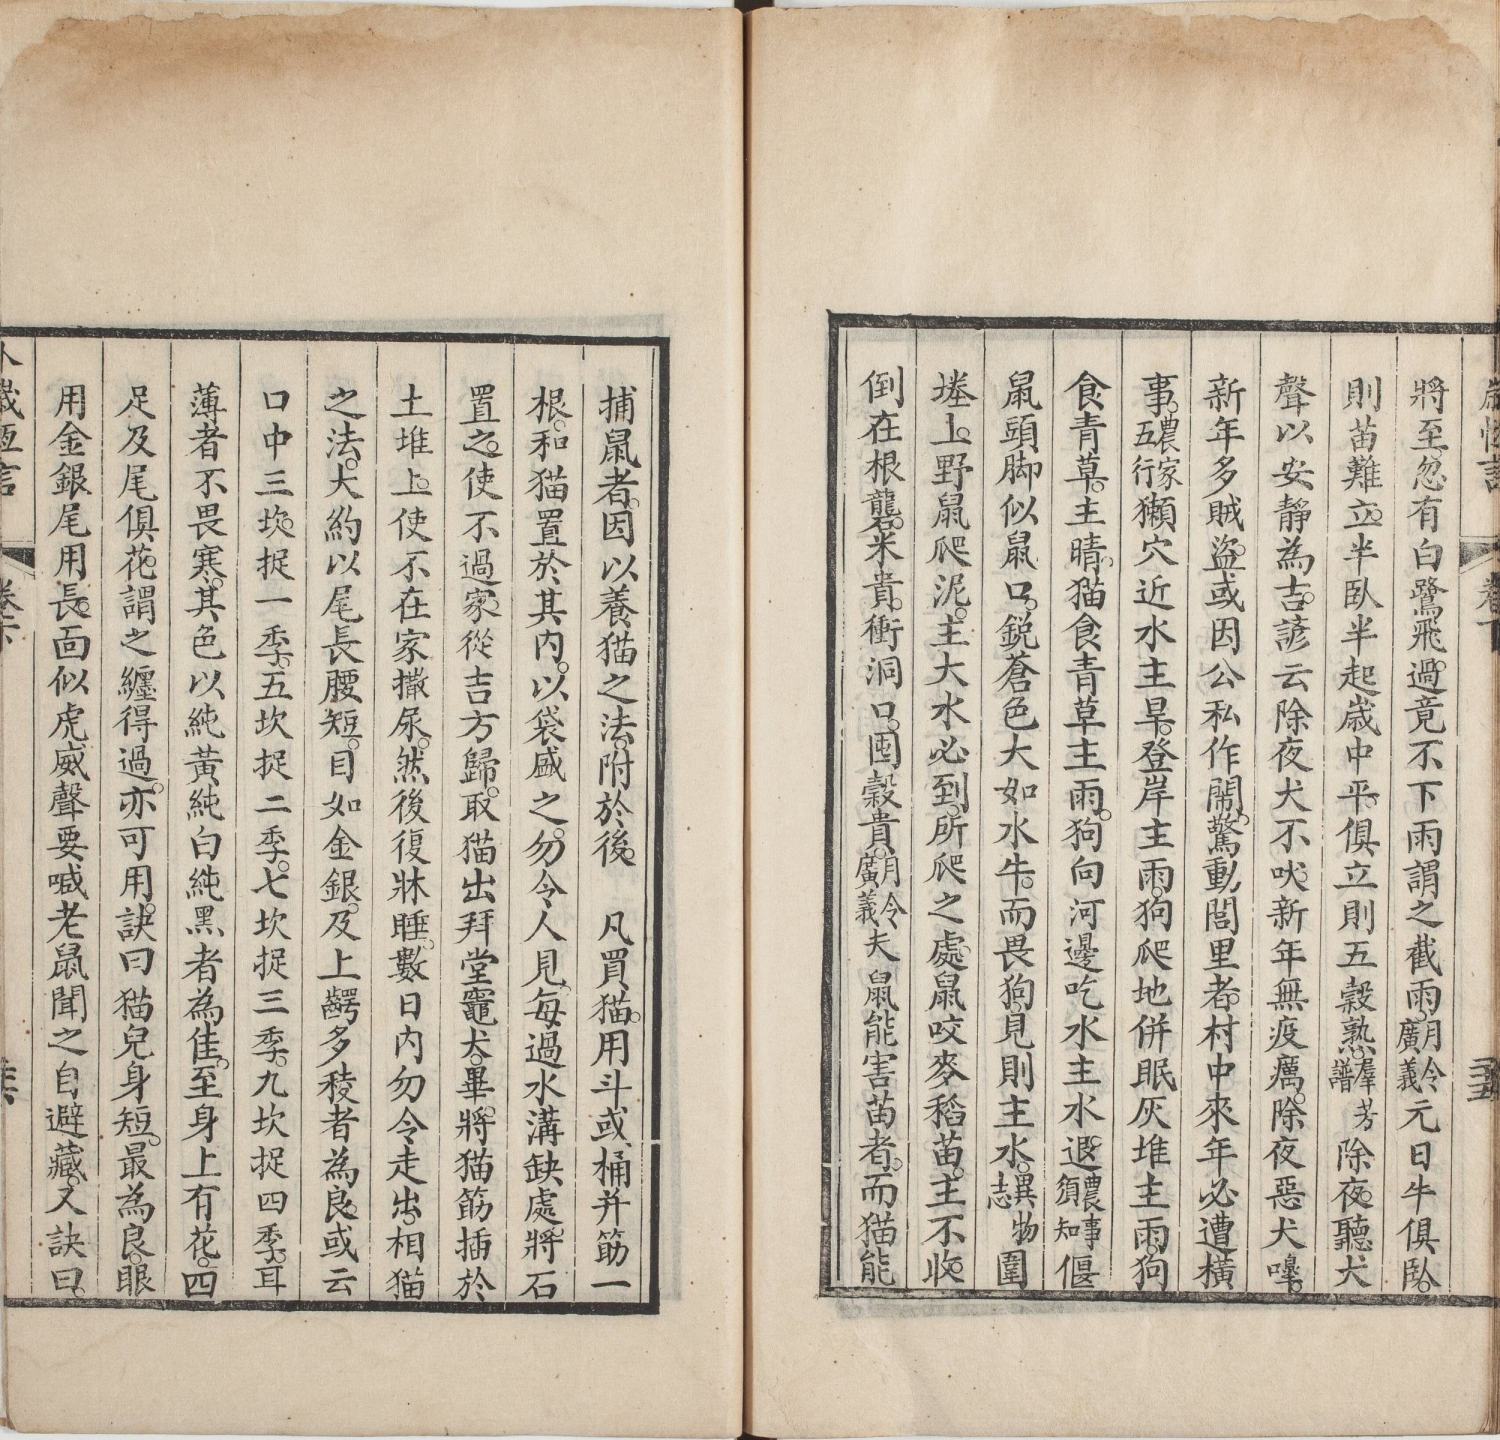 將至忽有白鷺飛過竟不下雨謂之截雨月令廣義元日牛俱臥
則苗難立半臥半起歲中平俱立則五穀熟羣芳譜除夜聽犬
聲以安靜為吉諺云除夜犬不吠新年無疫癘除夜惡犬嘷
新年多賊盜或因公私作鬧驚動閭里者村中來年必遭橫
事農家五行獺穴近水主旱登岸主雨狗爬地併眠灰堆主雨狗
食青草主晴猫食青草主雨狗向河邊吃水主水退農事須知偃
鼠頭脚似鼠口銳蒼色大如水牛而畏狗見則主水異物志圍
塍上野鼠爬泥主大水必到所爬之處鼠咬麥稻苗主不收
倒在根龒米貴衝洞口囤穀貴月令廣義夫鼠能害苗者而猫能
捕鼠者因以養猫之法附於後　凡買猫用斗或桶并筯一
根和猫置於其內以袋盛之勿令人見每過水溝缺處將石
置之使不過家從吉方歸取猫出拜堂竈犬畢將猫筯插於
土堆上使不在家撒尿然後復牀睡數日內勿令走出相猫
之法大約以尾長腰短目如金銀及上齶多稜者為良或云
口中三坎捉一季五坎捉二季七坎捉三季九坎捉四季耳
薄者不畏寒其色以純黃純白純黑者為佳至身上有花四
足及尾俱花謂之纏得過亦可用訣曰猫兒身短最為良眼
用金銀尾用長面似虎威聲要喊老鼠聞之自避藏又訣曰